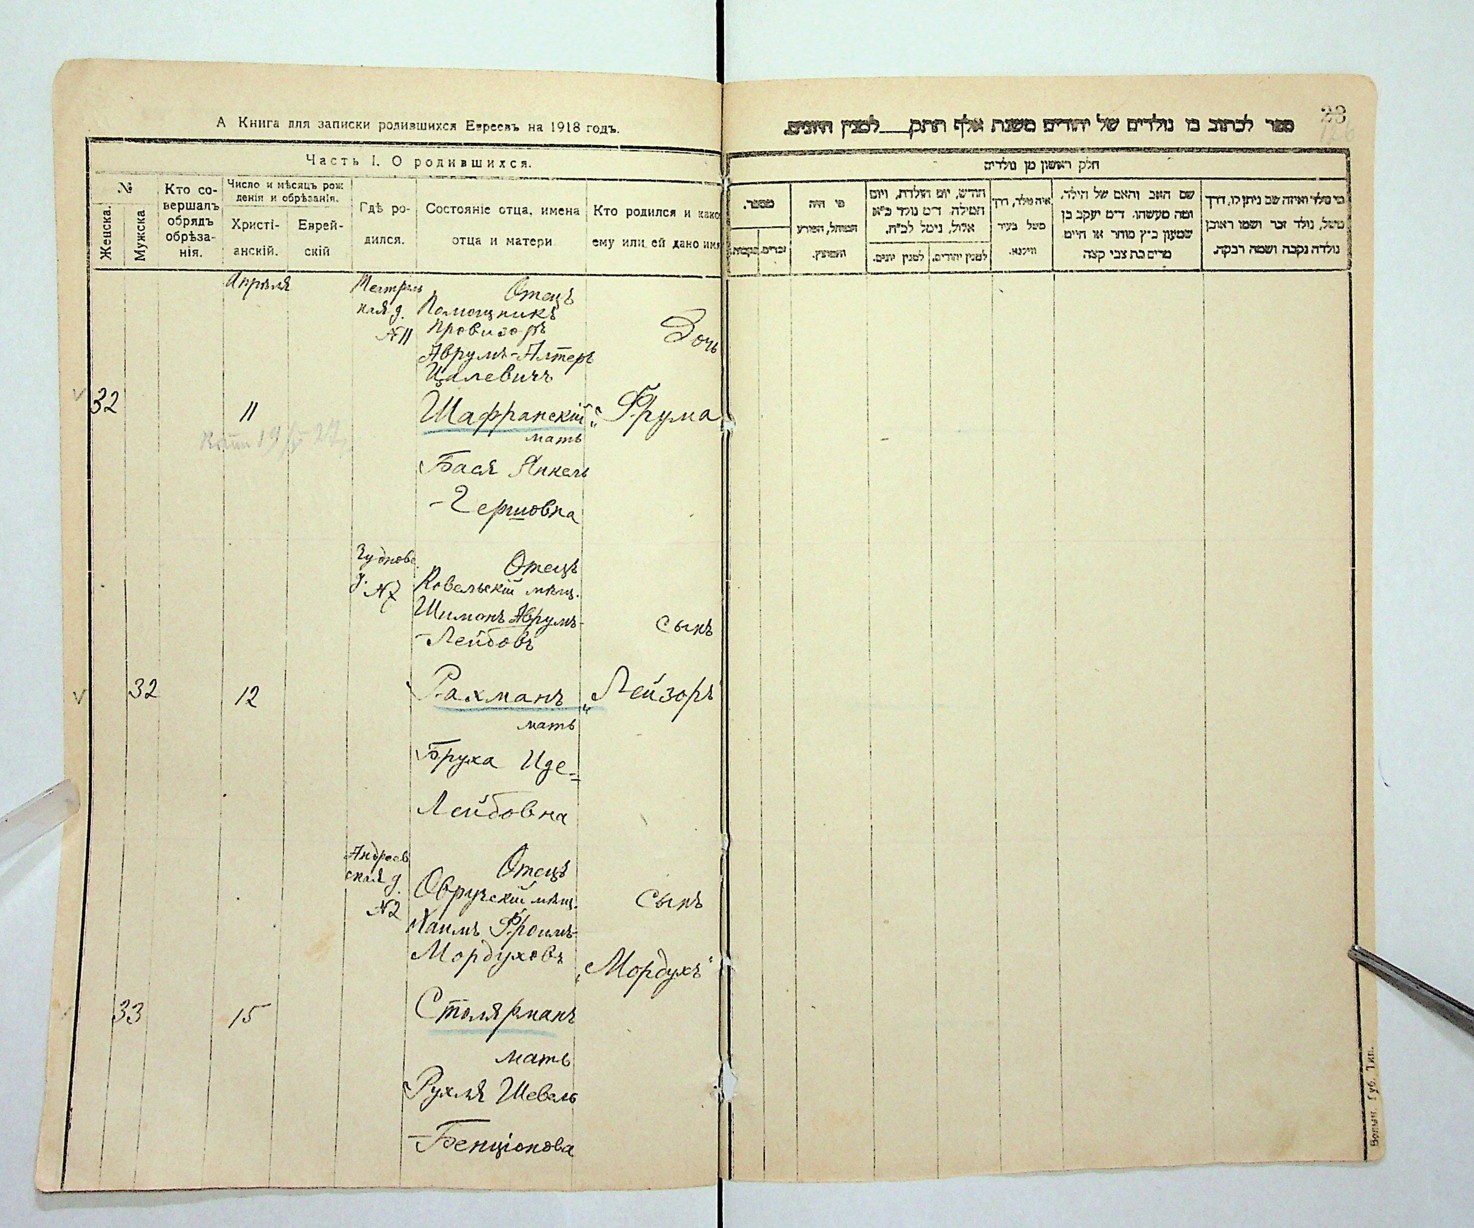 А Книга для записки родившихся Евреевъ на 1918 годъ.
Часть I. О родившихся.
№
Женска.
Мужска
Кто со-
вершалъ
обрядъ
обрѣза-
нія.
Число и мѣсяцъ рож
денія и обрѣзанія.
Христі-
анскій.
Еврей-
скій
Гдѣ ро-
дился.
Состояніе отца, имена
отца и матери
Кто родился и како
ему или ей дано имя
Апрѣля
Театраль
ная д.
№11
Отецъ
Помощникъ
провизоръ
Аврумъ-Алтеръ
Цалевичъ
Дочь
32
11
Шафранскій
„Фрума
мать
Бася Янкель
-Гершовна
Чуднов.
д.
№7
Отецъ
Ковельскій мѣщ.
Шимонъ Аврумъ-
-Лейбовъ
сынъ
32
12
Рахманъ
„Лейзоръ
мать
Бруха Иде=
Лейбовна
Андреев
ская д.
№2
Отецъ
Овручскій мѣщ.
Хаимъ Фроимъ-
Мордуховъ
сынъ
„Мордухъ"
33
15
Столярманъ
мать
Рухля Шевель
-Бенціонова
ספר לכתוב בו נולדים של יהודים משנת אלף תתק___למנין היונים.
28
חלק ראשון מן נולדיה
מספר.
זכרים.
נקבות.
מי היה
המוהל, הפורע
והמוצץ.
חודש, יום הולדת, ויום
המילה. ד״מ נולד כ״א
אלול, נימל לכ״ח.
למנין יונים.
למנין יהודים.
איה נולד, דרך
משל בעיר
ווילנא.
שם האב והאם של הילד.
ומה מעשהו. ד״מ יעקב בן
שמעון כ״ץ מוחר או חיים
מרים בת צבי קצה
מי נולד ואיזה שם ניתן לו, דרך
משל, נולד זכר ושמו ראובן
נולדה נקבה ושמה רבקה.
Волын. Губ. Тип.